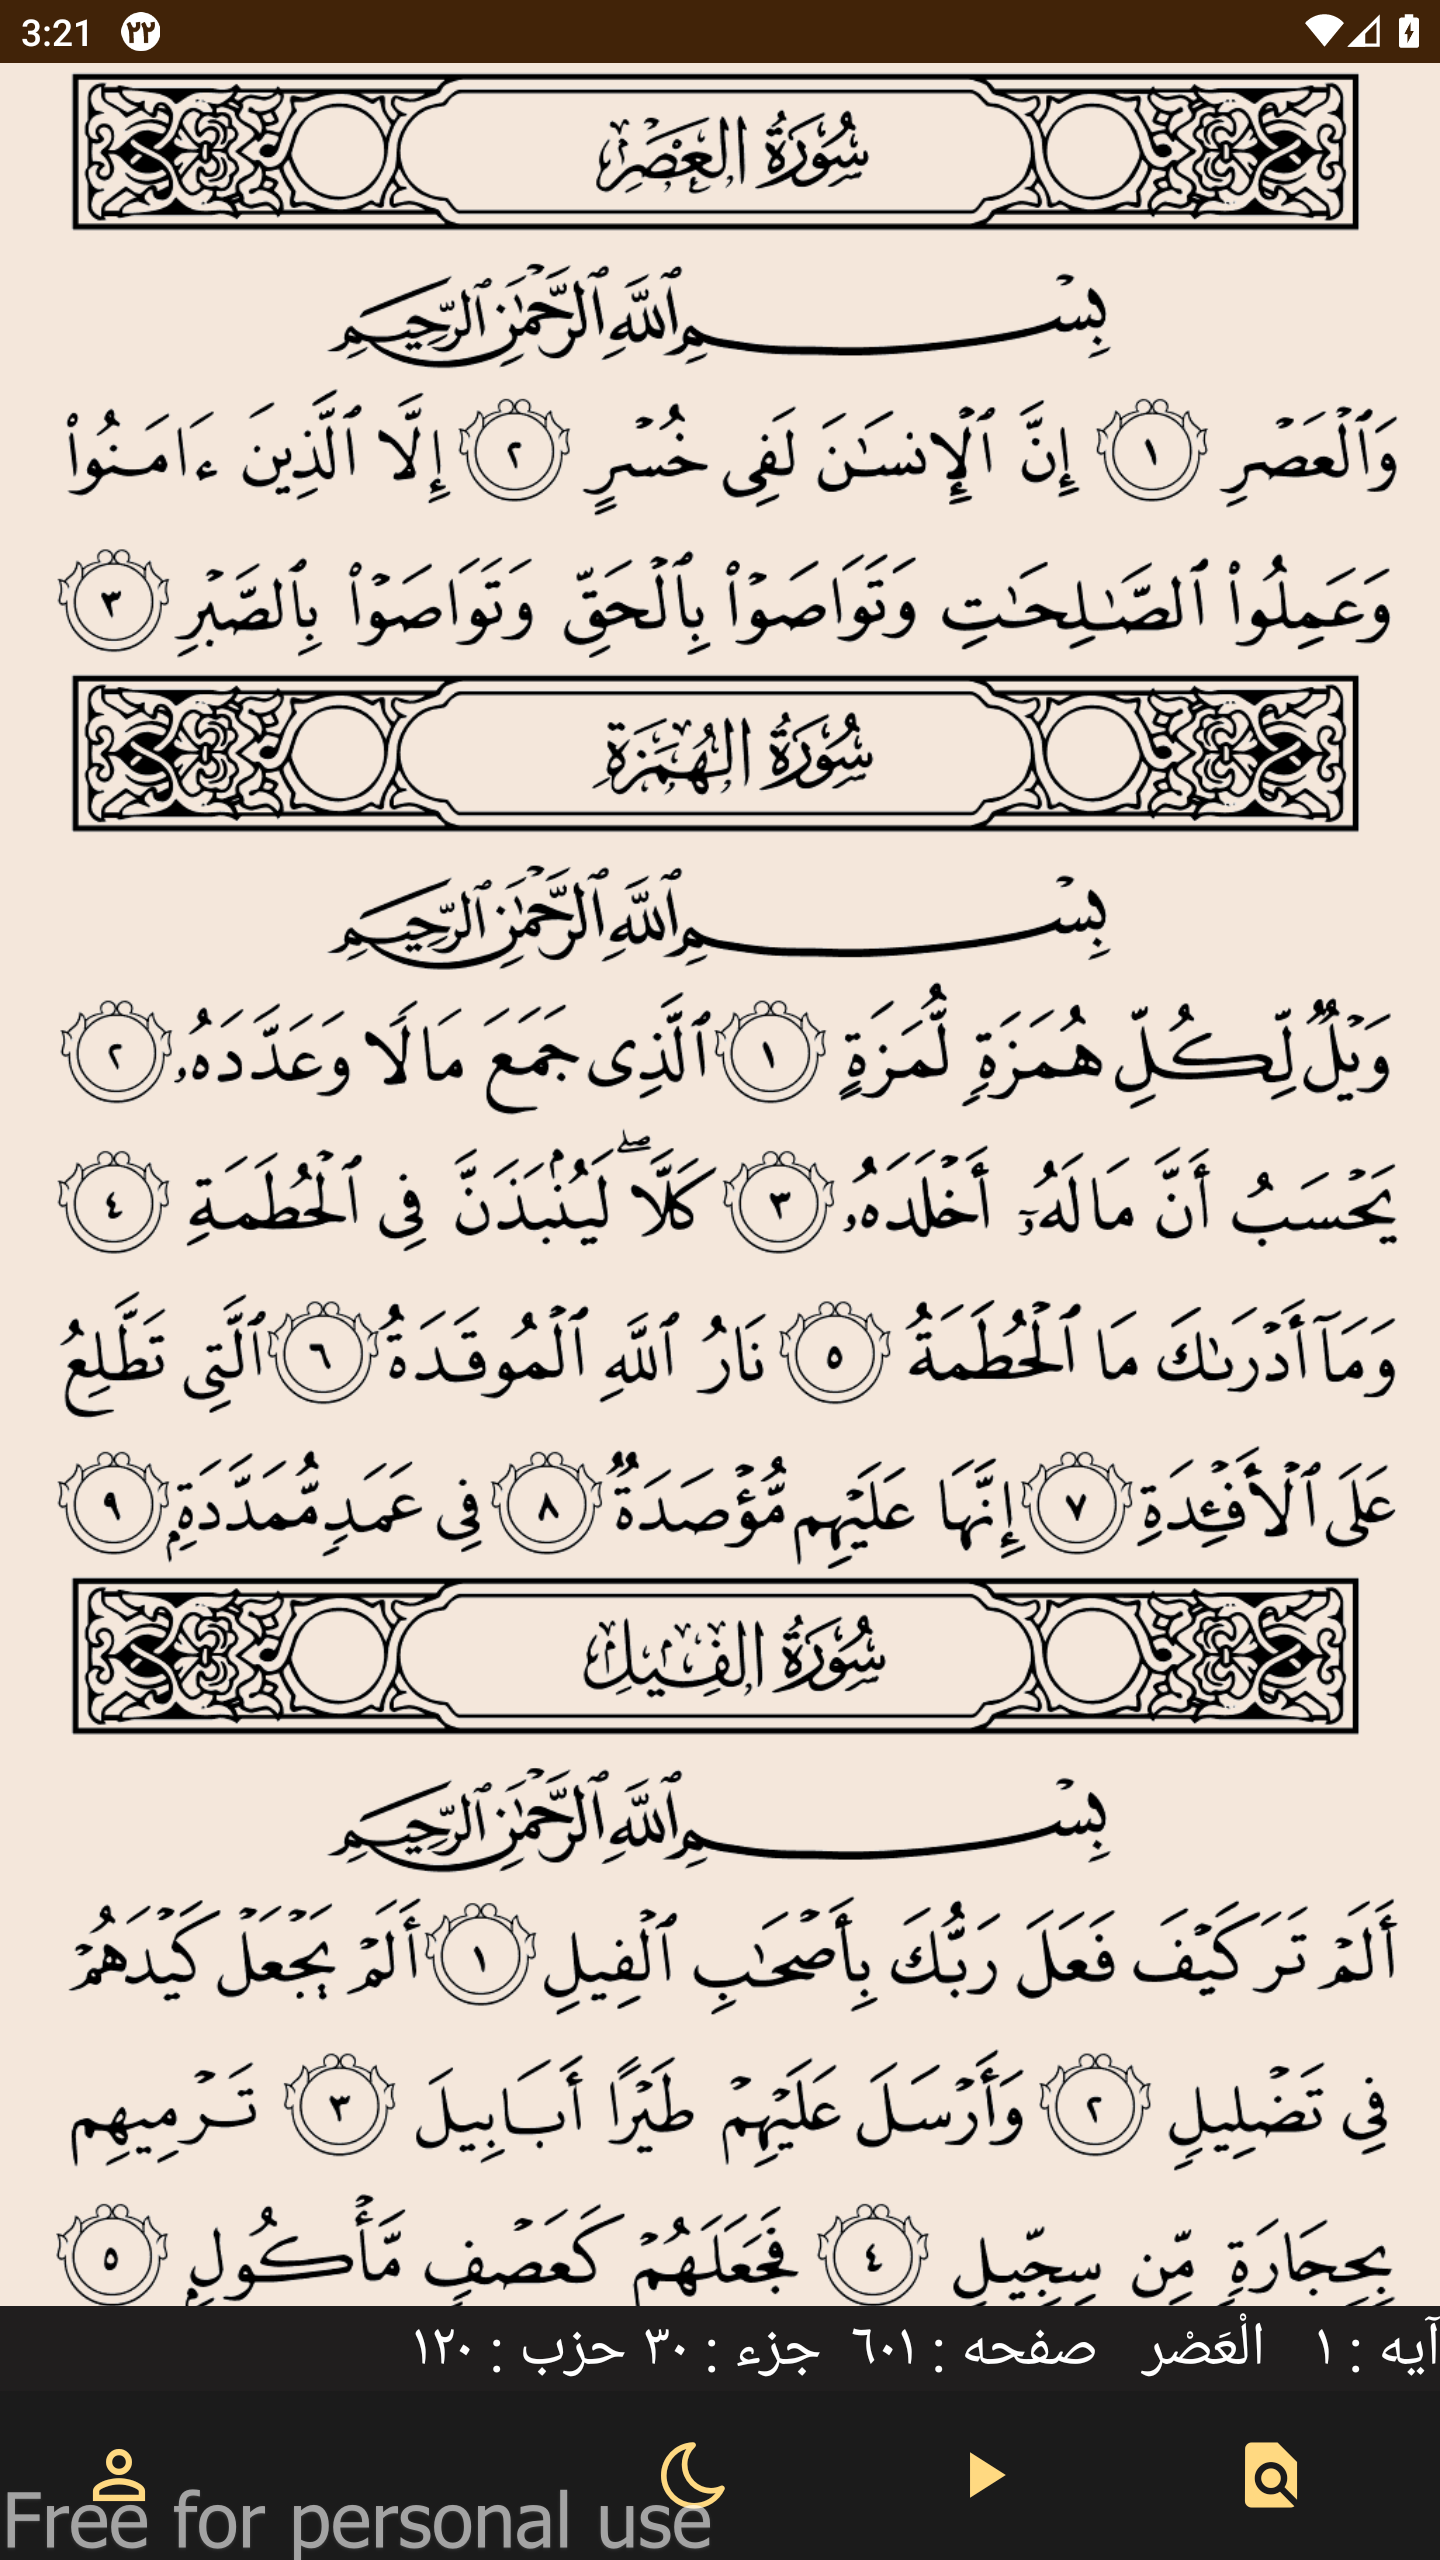 3:21 ٢٢
سُورَةُ العَصْرِ
بِسْمِ ٱللَّهِ ٱلرَّحْمَٰنِ ٱلرَّحِيمِ
وَٱلْعَصْرِ ١ إِنَّ ٱلْإِنسَٰنَ لَفِى خُسْرٍ ٢ إِلَّا ٱلَّذِينَ ءَامَنُوا۟
وَعَمِلُوا۟ ٱلصَّٰلِحَٰتِ وَتَوَاصَوْا۟ بِٱلْحَقِّ وَتَوَاصَوْا۟ بِٱلصَّبْرِ ٣
سُورَةُ الهُمَزَةِ
بِسْمِ ٱللَّهِ ٱلرَّحْمَٰنِ ٱلرَّحِيمِ
وَيْلٌ لِّكُلِّ هُمَزَةٍ لُّمَزَةٍ ١ ٱلَّذِى جَمَعَ مَالًا وَعَدَّدَهُۥ ٢
يَحْسَبُ أَنَّ مَالَهُۥٓ أَخْلَدَهُۥ ٣ كَلَّا ۖ لَيُنۢبَذَنَّ فِى ٱلْحُطَمَةِ ٤
وَمَآ أَدْرَىٰكَ مَا ٱلْحُطَمَةُ ٥ نَارُ ٱللَّهِ ٱلْمُوقَدَةُ ٦ ٱلَّتِى تَطَّلِعُ
عَلَى ٱلْأَفْـِٔدَةِ ٧ إِنَّهَا عَلَيْهِم مُّؤْصَدَةٌ ٨ فِى عَمَدٍ مُّمَدَّدَةٍۭ ٩
سُورَةُ الفِيلِ
بِسْمِ ٱللَّهِ ٱلرَّحْمَٰنِ ٱلرَّحِيمِ
أَلَمْ تَرَ كَيْفَ فَعَلَ رَبُّكَ بِأَصْحَٰبِ ٱلْفِيلِ ١ أَلَمْ يَجْعَلْ كَيْدَهُمْ
فِى تَضْلِيلٍ ٢ وَأَرْسَلَ عَلَيْهِمْ طَيْرًا أَبَابِيلَ ٣ تَرْمِيهِم
بِحِجَارَةٍ مِّن سِجِّيلٍ ٤ فَجَعَلَهُمْ كَعَصْفٍ مَّأْكُولٍۭ ٥
آیه : ١ الْعَصْر صفحه : ٦٠١ جزء : ٣٠ حزب : ١٢٠
Free for personal use